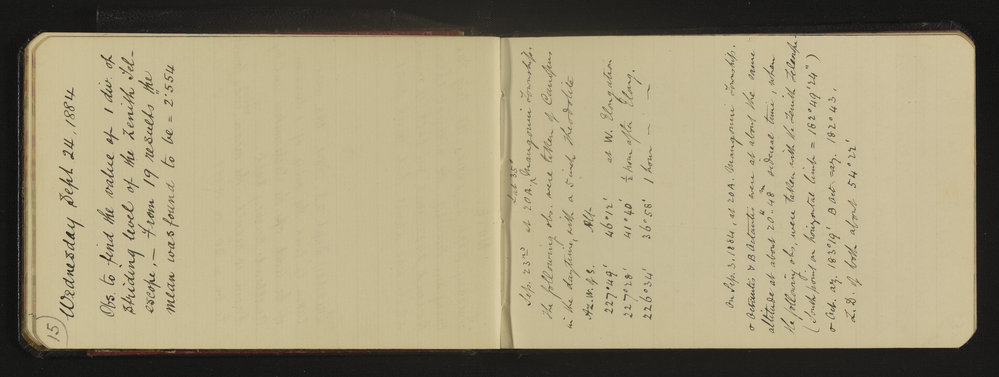 15
Wednesday Sept 24, 1884
Obs to find the value of 1 div. of
Striding level of the Zenith Tel-
escope. — From 19 results the
mean was found to be = 2".554
Lat 35°
Sep. 23rd at 20A, Mangonui Township.
The following obs. were taken of Canopus
in the daytime, with a 5 inch Theodolite
Az. W. of S. Alt.
227° 49' 46° 12' at W. Elongation
227° 28' 41° 40' ½ hour after Elong.
226° 34' 36° 58' 1 hour — —
On Sep. 3. 1884, at 20A. Mangonui Township.
σ Octantis & B Octantis were at about the same
altitude at about 20h 48m sidereal time, when
the following obs. were taken with the Zenith Telescope.
(South point on horizontal limb = 182° 49' 24")
σ Oct. az. 183° 19' B Oct. az. 182° 43.
Z.D. of both about 54° 22'